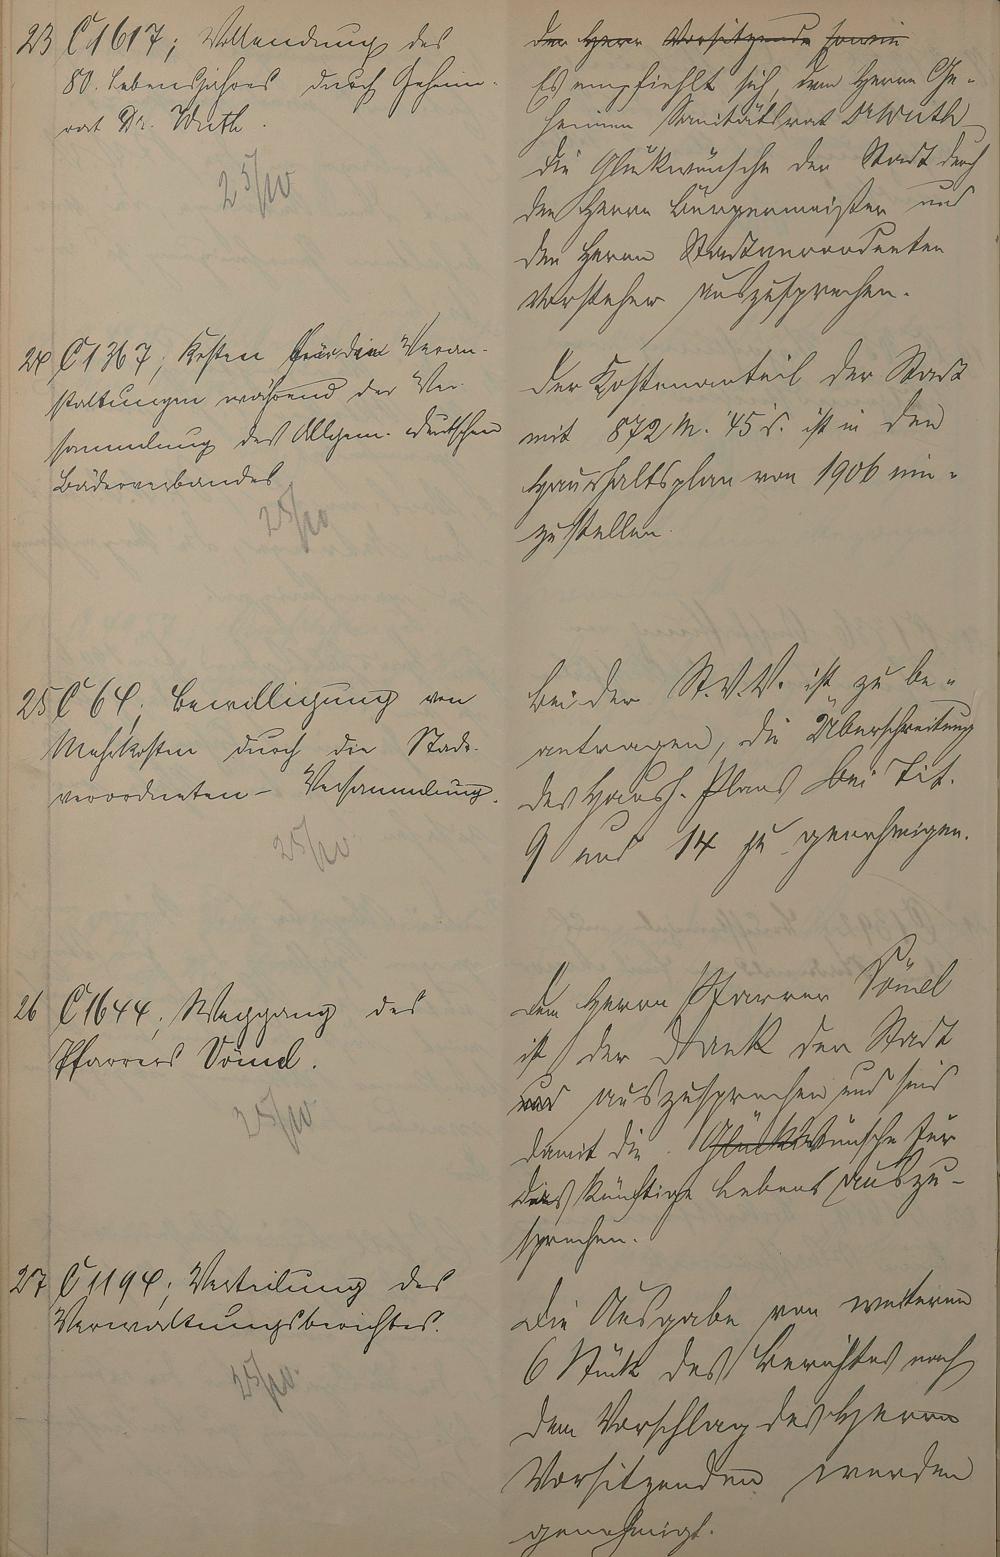 23 C 1617; Vollendung des
80. Lebensjahres durch Geheim-
rat Dr. Wuth.
25/10
der Herr Vorsitzende sowie
Es empfiehlt sich, dem Herrn Ge-
heimen Sanitätsrat Dr Wuth
die Glückwünsche der Stadt durch
den Herrn Bürgermeister und
den Herrn Stadtverordneten
Vorsteher auszusprechen.
24 C 1367; Kosten für die Veran-
staltungen während der Ver-
sammlung des Allgem. deutschen
Bäderverbandes
25/10
Der Kostenanteil der Stadt
mit 872 M. 45 S. ist in den
Haushaltsplan von 1906 ein-
zustellen.
25 C 64; Bewilligung von
Mehrkosten durch die Stadt-
verordneten-Versammlung.
25/10
Bei der St.V.V. ist zu be-
antragen, die Überschreitung
des Haush. Plans bei Tit.
9 und 14 zu genehmigen.
26 C 1644; Weggang des
Pfarrers Sömel.
25/10
Dem Herrn Pfarrer Sömel
ist der Dank der Stadt
auszusprechen und sind
damit die Glückwünsche für
das künftige Leben auszu-
sprechen.
27 C 1194; Verteilung des
Verwaltungsberichtes.
25/10.
Die Ausgabe von weiteren
6 Stück des Berichtes nach
dem Vorschlag des Herrn
Vorsitzenden werden
genehmigt.